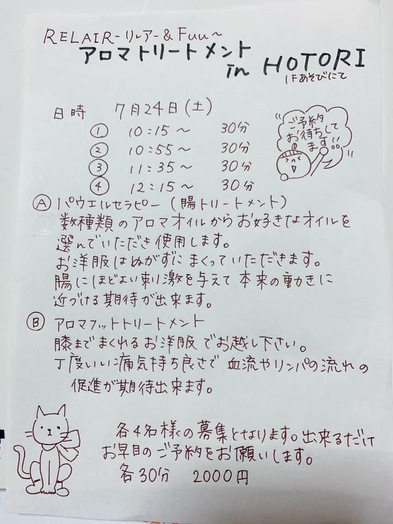 RELAIR-リレアー&Fuu~
アロマトリートメント
in HOTORI
1Fあそびにて
日時 7月24日(土)
① 10:15~ 30分
② 10:55~ 30分
③ 11:35~ 30分
④ 12:15~ 30分
ご予約
お待ちして
ます!!
Ⓐ パウエルセラピー(腸トリートメント)
数種類のアロマオイルからお好きなオイルを
選んでいただき使用します。
お洋服はぬがずにまくっていただきます。
腸にほどよい刺激を与えて本来の動きに
近づける期待が出来ます。
Ⓑ アロマフットトリートメント
膝までまくれるお洋服でお越し下さい。
丁度いい痛気持ち良さで血流やリンパの流れの
促進が期待出来ます。
各4名様の募集となります。出来るだけ
お早目のご予約をお願いします。
各30分 2000円